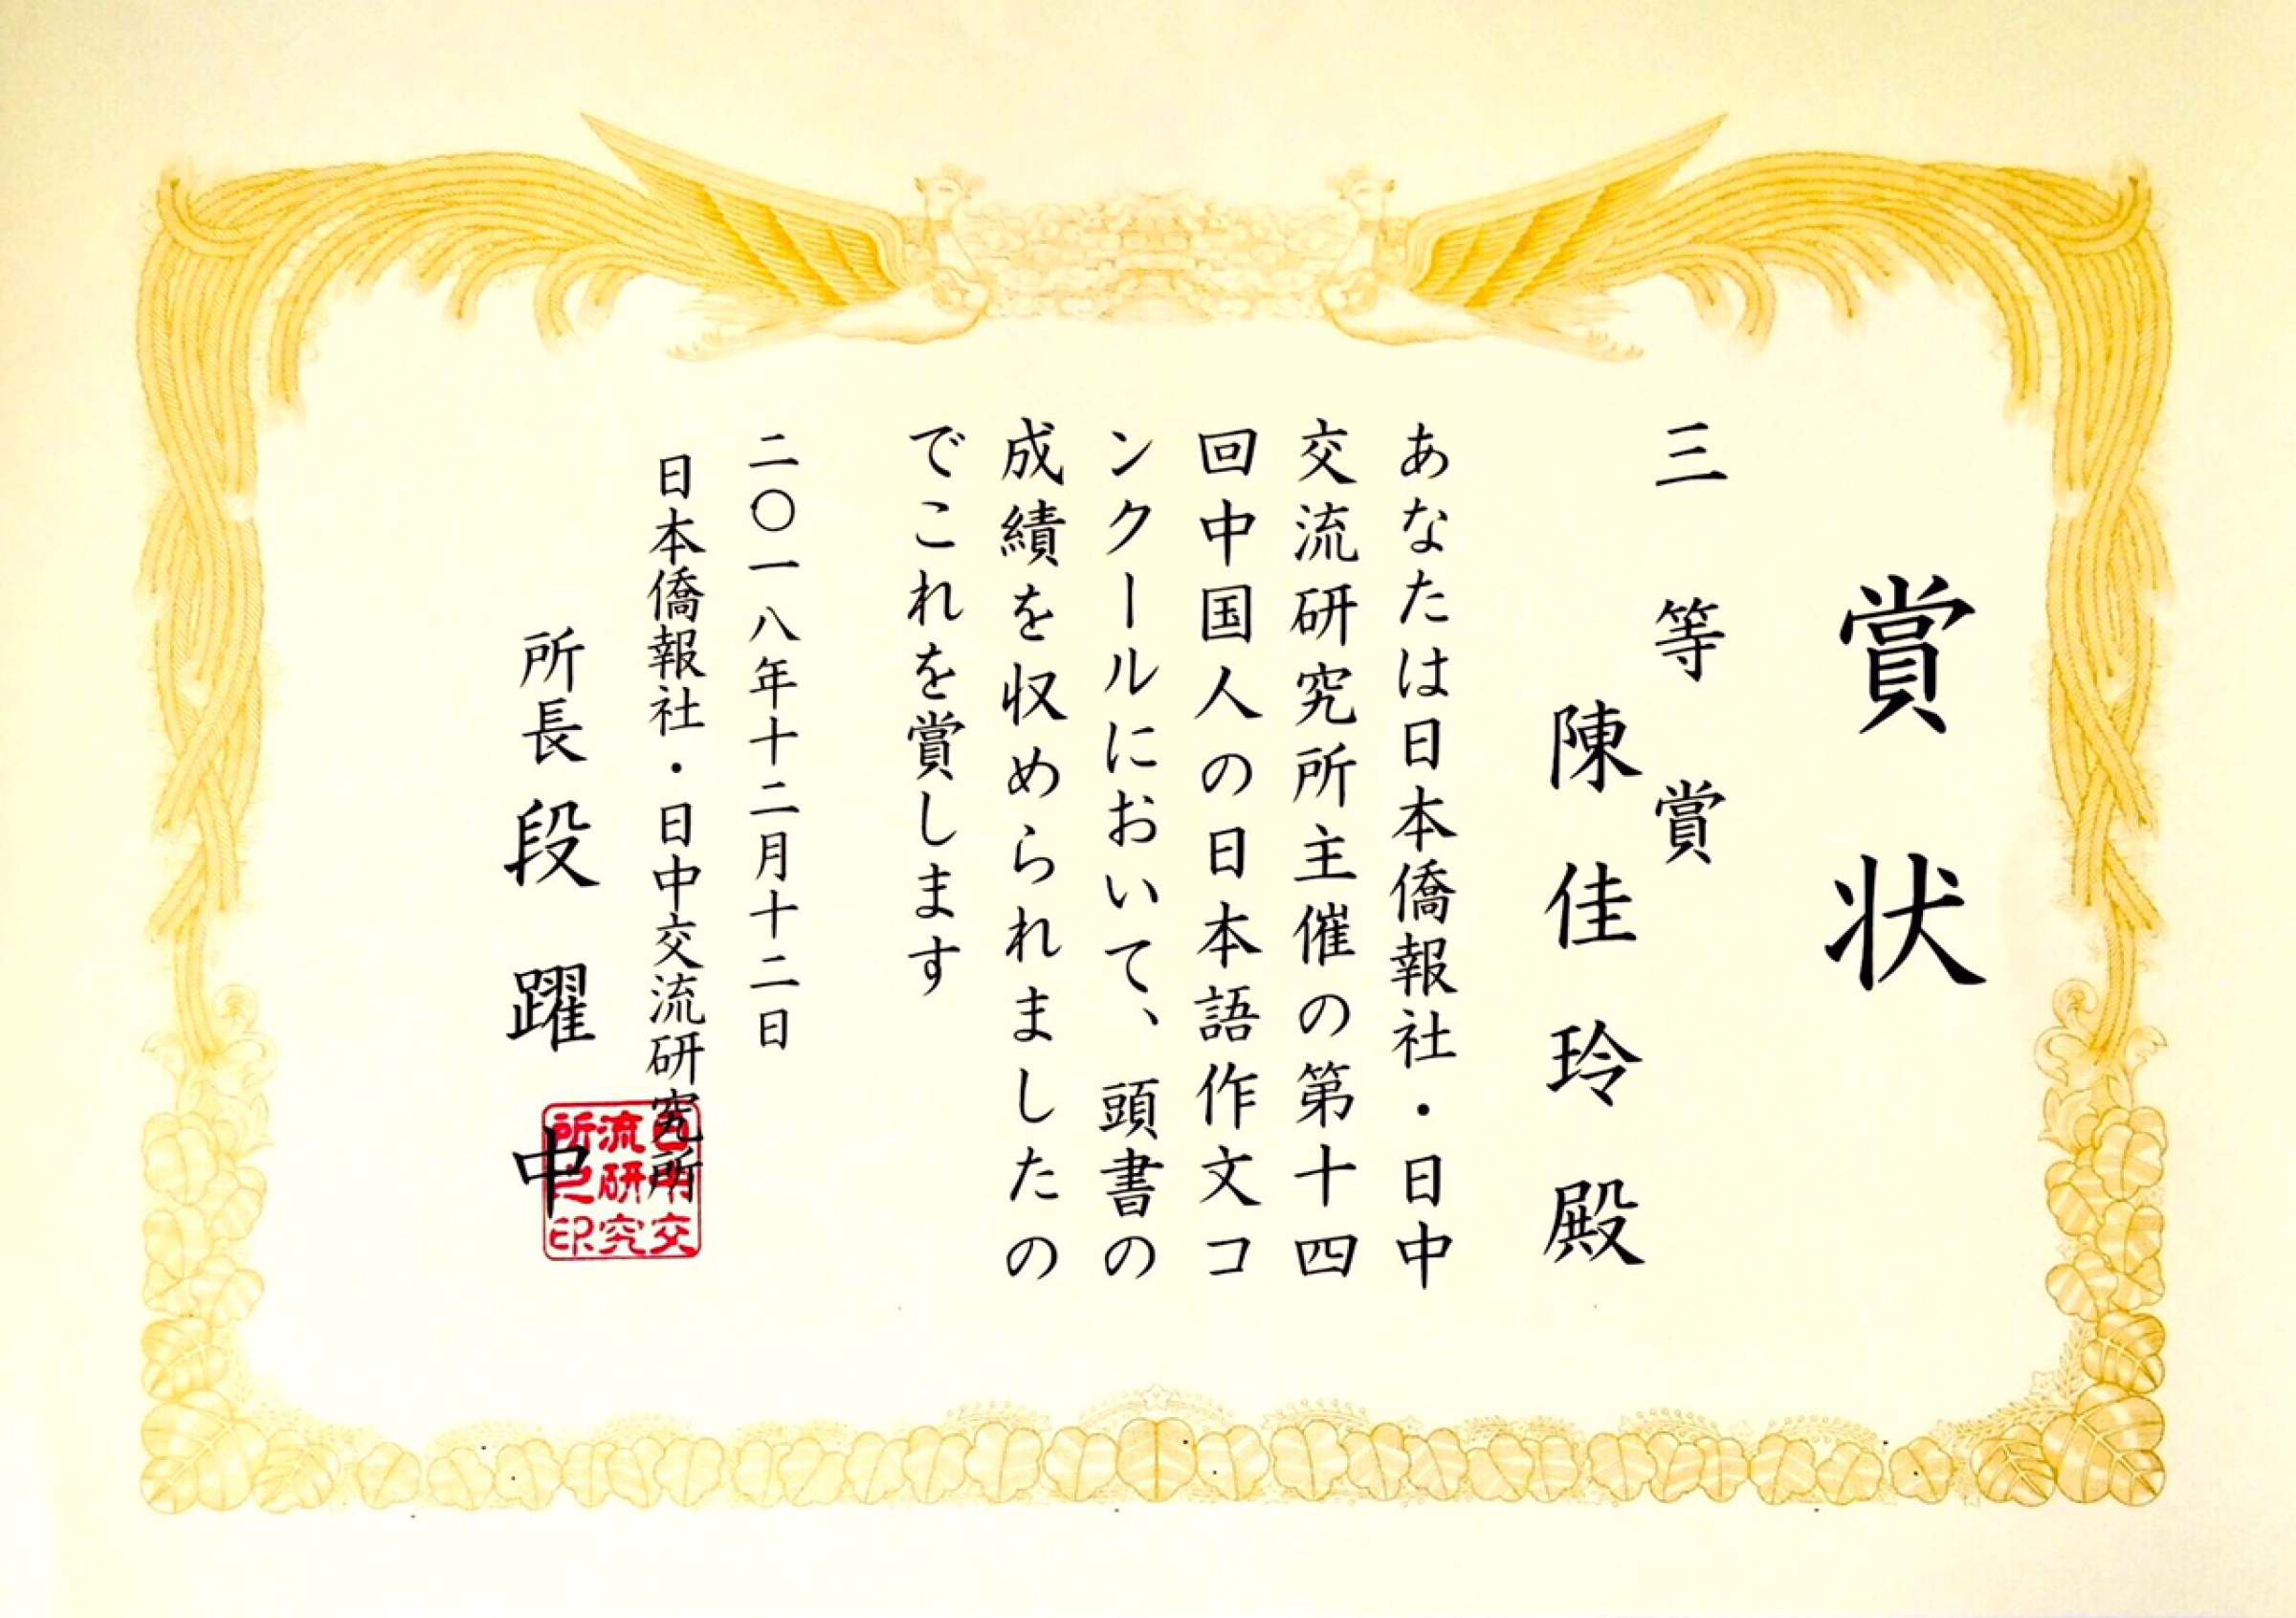 賞状
三等賞
陳佳玲殿
あなたは日本僑報社・日中
交流研究所主催の第十四
回中国人の日本語作文コ
ンクールにおいて、頭書の
成績を収められましたの
でこれを賞します
二〇一八年十二月十二日
日本僑報社・日中交流研究所
所長段躍中
日中交
流研究
所之印